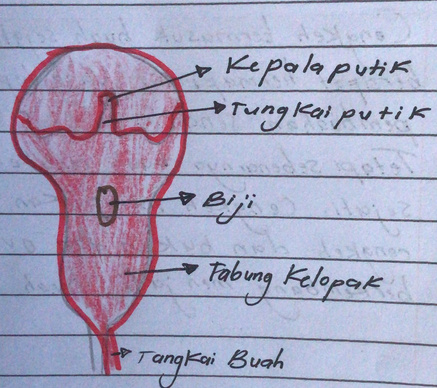 Kepala putik
Tungkai putik
Biji
Tabung Kelopak
Tangkai Buah